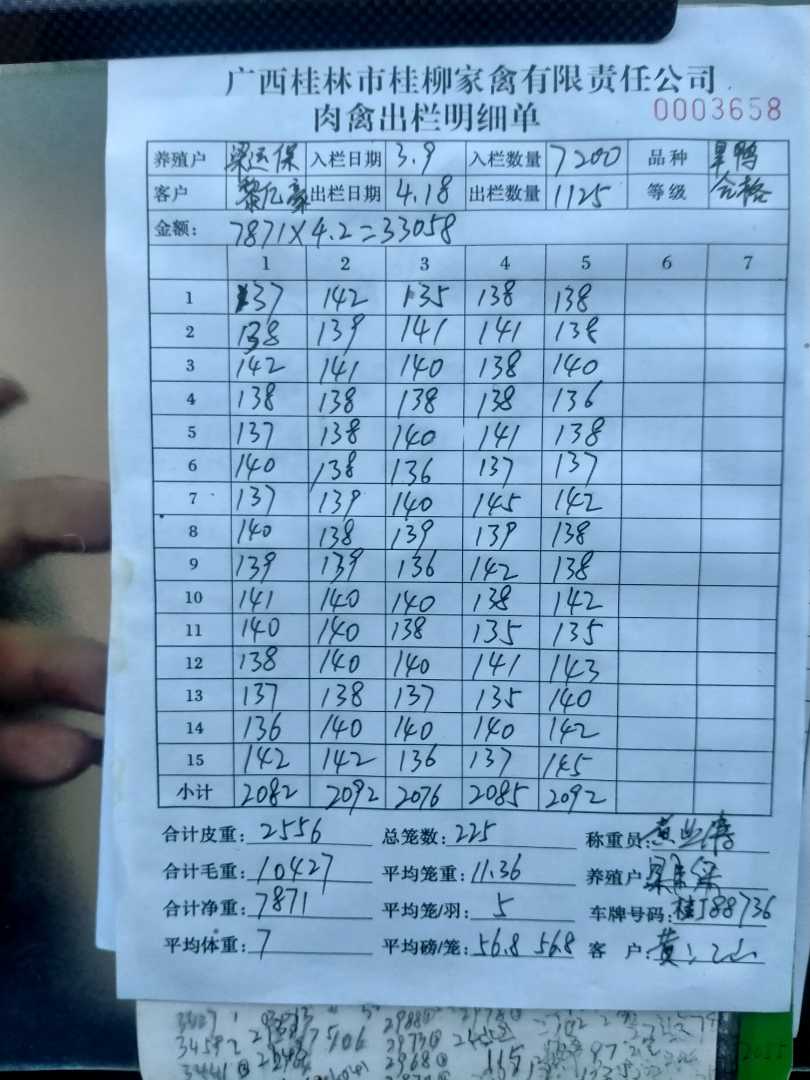 广西桂林市桂柳家禽有限责任公司
肉禽出栏明细单 0003658
养殖户 梁运保 入栏日期 3.9 入栏数量 7200 品种 旱鸭
客户 黎亿豪 出栏日期 4.18 出栏数量 1125 等级 合格
金额: 7871×4.2=33058
1 2 3 4 5 6 7
1 137 142 135 138 138
2 138 139 141 141 138
3 142 141 140 138 140
4 138 138 138 138 136
5 137 138 140 141 138
6 140 138 136 137 137
7 137 139 140 145 142
8 140 138 139 139 138
9 139 139 136 142 138
10 141 140 140 138 142
11 140 140 138 135 135
12 138 140 140 141 143
13 137 138 137 135 140
14 136 140 140 140 142
15 142 142 136 137 145
小计 2082 2092 2076 2085 2092
合计皮重: 2556 总笼数: 225 称重员:
合计毛重: 10427 平均笼重: 11.36 养殖户
合计净重: 7871 平均笼/羽: 5 车牌号码: 桂J88736
平均体重: 7 平均磅/笼: 56.8 56.8 客 户: 黄